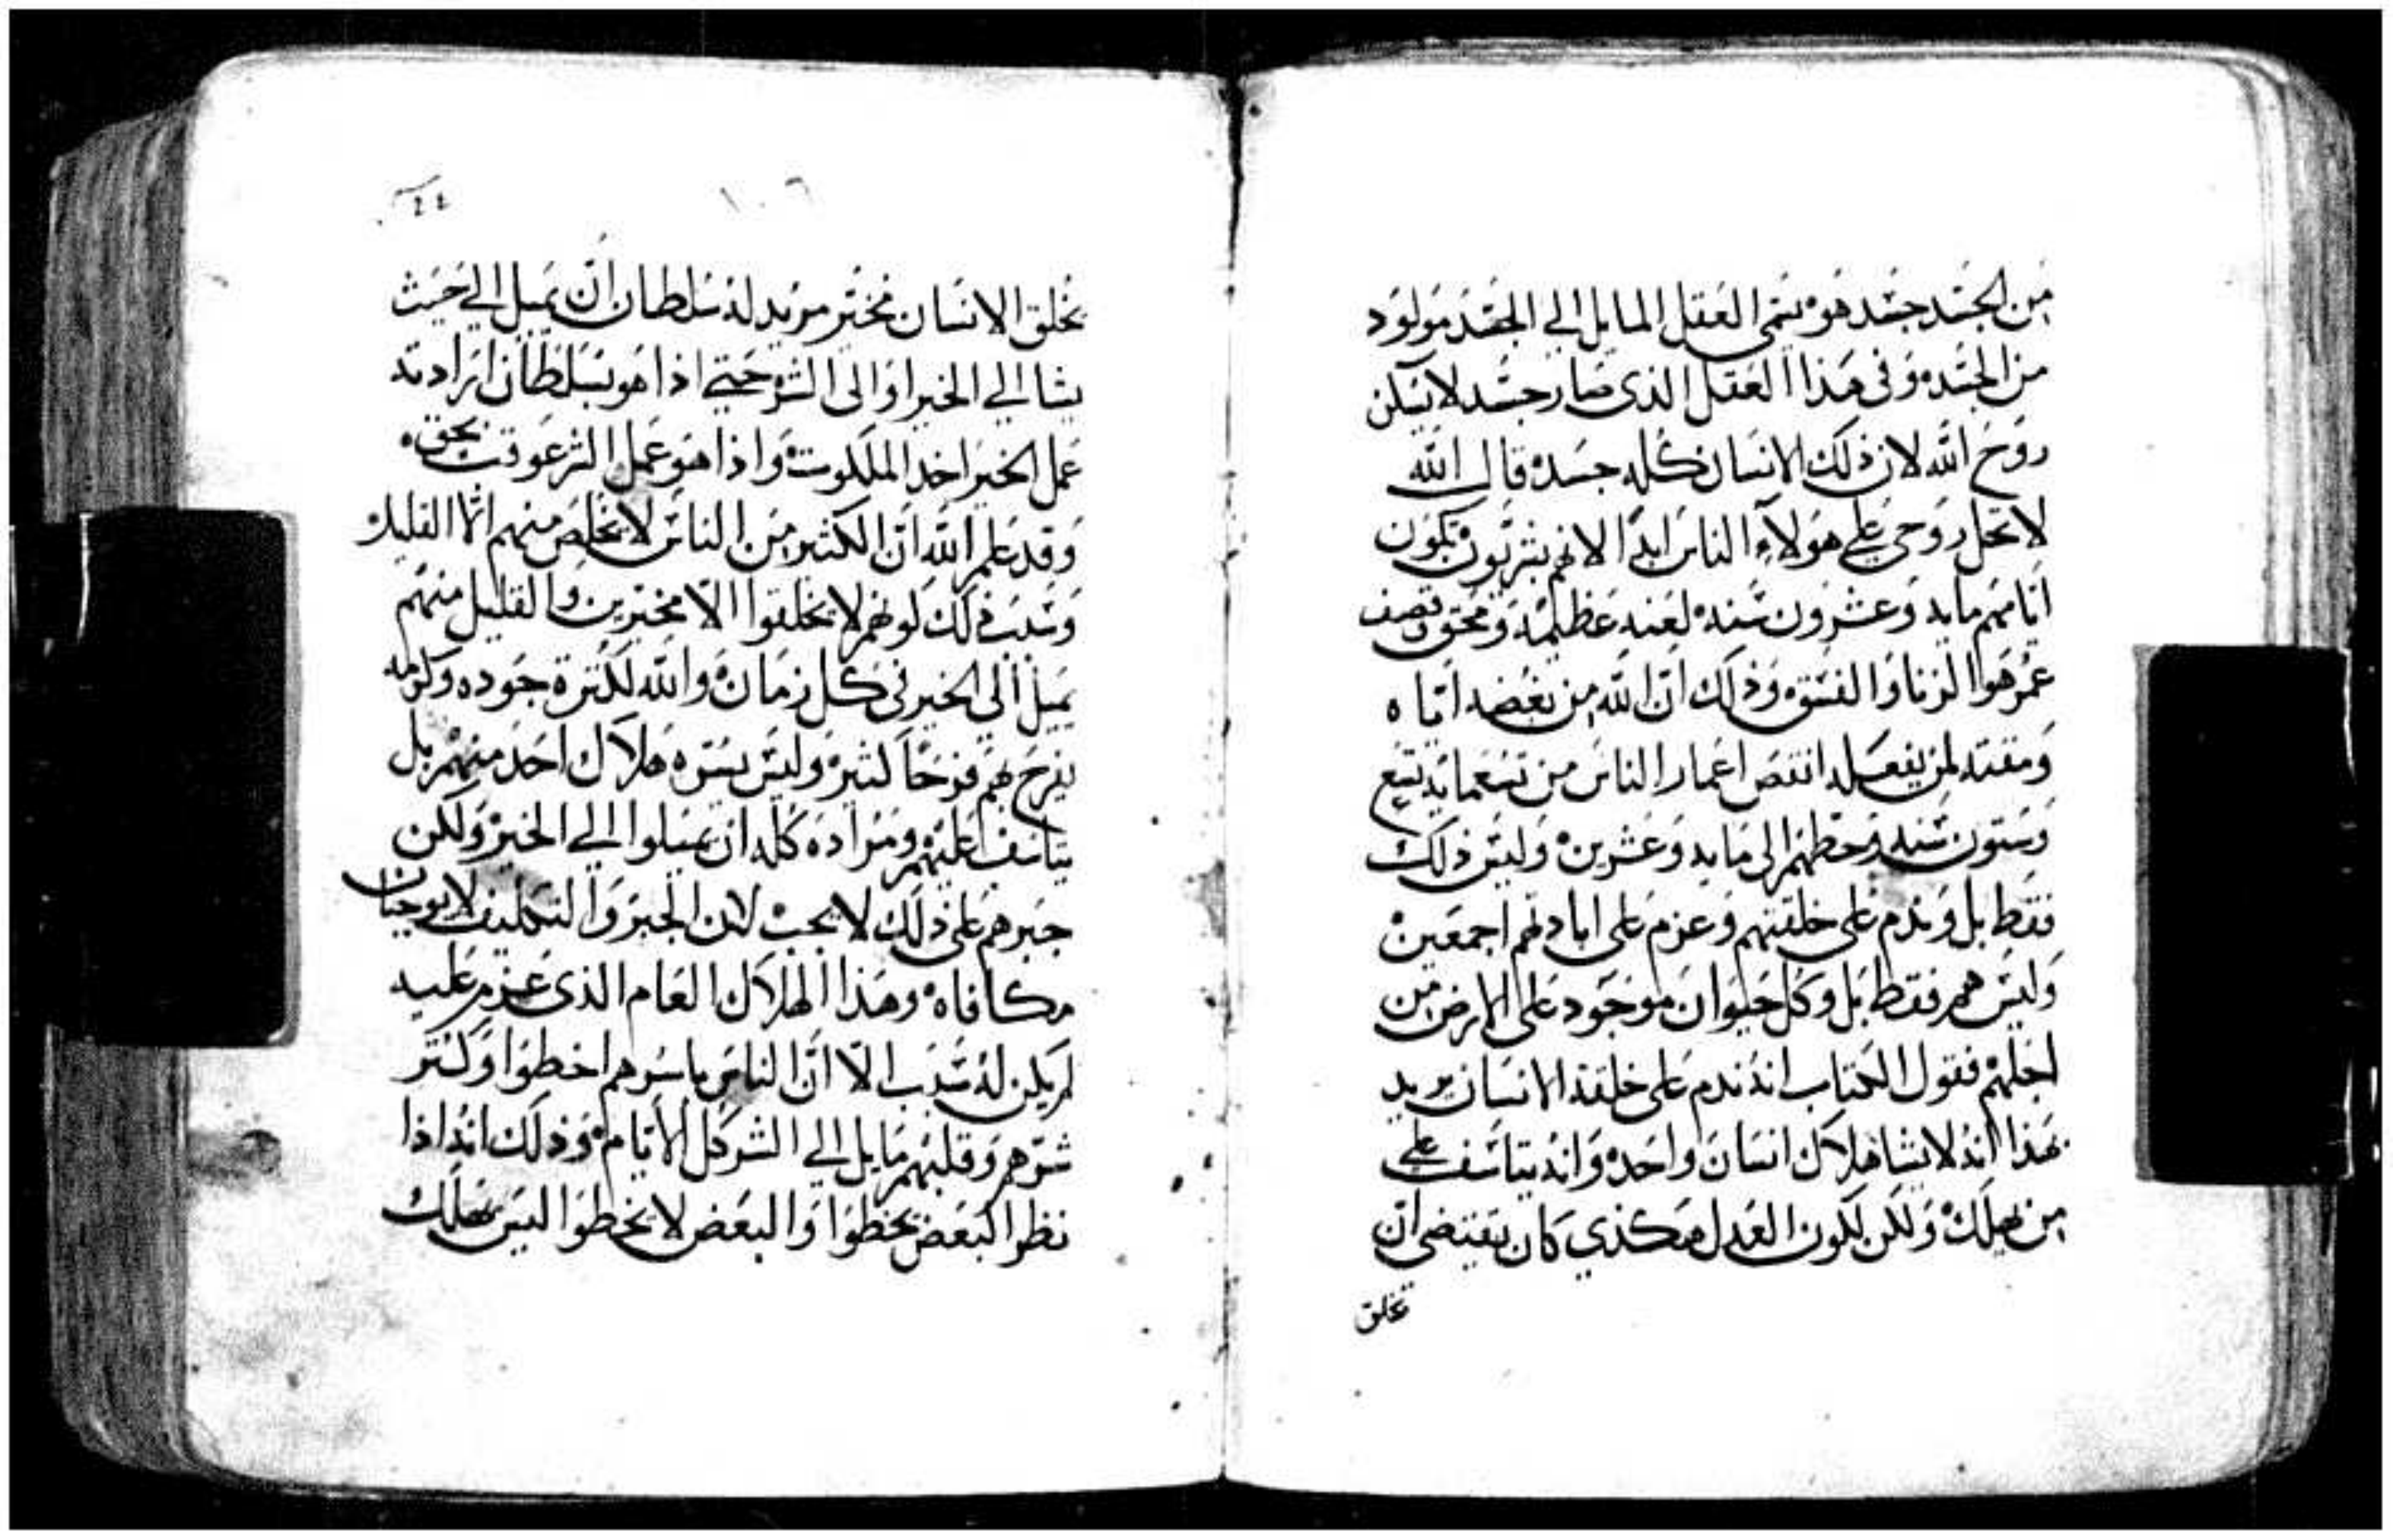 من الجسد جسد هو يسمي العقل المايل الي الجسد مولود
من الجسد وفى هذا العقل الذى صار جسد لا يسكن
روح الله لان ذلك الانسان كله جسد قال الله
لا تحل روحي علي هولاء الناس ابدًا لانهم بشريون تكون
ايامهم مايه وعشرون سنه لعنه عظيمه ومحق نصف
عمر هوا الزنا والفسق وذلك ان الله من بغضه اياه
ومقته لمن يفعله انتقص اعمار الناس من تسعمايه تسع
وستون سنه وحطهم الى مايه وعشرين وليس ذلك
فقط بل وندم على خلقتهم وعزم على ابادتهم اجمعين
وليس هم فقط بل وكل حيوان موجود على الارض من
اجلهم فقول الكتاب انه ندم على خلقة الانسان يريد
بهذا انه لا يشا هلاك انسان واحد وانه يتاسف علي
من يهلك ولكن لكون العدل هكذي كان يقتضي ان
يخلق
١٠٦
يخلق الانسان مخير مريد له سلطان ان يميل الي حيث
يشا الي الخير او الى الشر حتي اذا هو بسلطان ارادته
عمل الخير اخد الملكوت واذا هو عمل الشر عوقب بحق
وقد علم الله ان الكثير من الناس لا يخلص منهم الا القليل
وسبب ذلك لونهم لا يخلقوا الا مخيرين والقليل منهم
يميل الي الخير في كل زمان والله لكثرة جوده وكرمه
يفرح بهم فرحًا كثير وليس يسره هلاك احد منهم بل
يتاسف عليهم ومراده كله ان يميلوا الي الخير ولكن
جبرهم على ذلك لا يجب لان الجبر والتكليف لا يوجبان
مكافاه وهذا الهلاك العام الذى عزم عليه
لم يكن له سبب الا ان الناس باسرهم اخطوا وكثر
شرهم وقلبهم مايل الي الشر كل الايام وذلك انه اذا
نظر البعض يخطوا والبعض لا يخطوا ليس يهلك